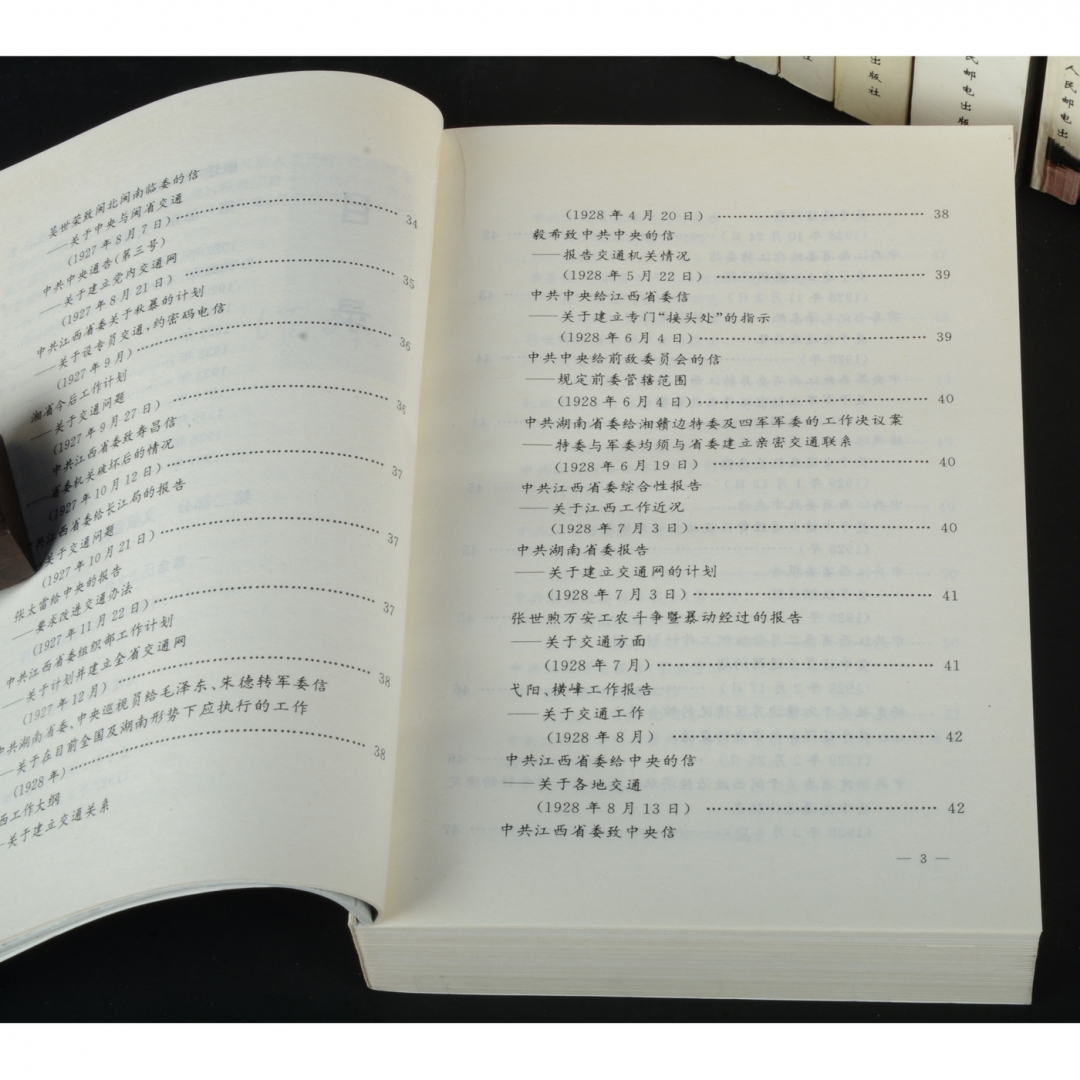 吴世荣致闽北闽南临委的信
——关于中央与闽省交通
(1927年8月7日)…………34
中共中央通告(第三号)
——关于建立党内交通网
(1927年8月21日)…………35
中共江西省委关于秋暴的计划
——关于设专员交通,约密码电信
(1927年9月)…………36
湘省今后工作计划
——关于交通问题
(1927年9月27日)…………36
中共江西省委致寿昌信
——省委机关破坏后的情况
(1927年10月12日)…………37
中共江西省委给长江局的报告
——关于交通问题
(1927年10月21日)…………37
张太雷给中央的报告
——要求改进交通办法
(1927年11月22日)…………37
中共江西省委组织部工作计划
——关于计划并建立全省交通网
(1927年12月)…………38
中共湖南省委、中央巡视员给毛泽东、朱德转军委信
——关于在目前全国及湖南形势下应执行的工作
(1928年)…………38
西工作大纲
——关于建立交通关系
(1928年4月20日)…………38
毅希致中共中央的信
——报告交通机关情况
(1928年5月22日)…………39
中共中央给江西省委信
——关于建立专门“接头处”的指示
(1928年6月4日)…………39
中共中央给前敌委员会的信
——规定前委管辖范围
(1928年6月4日)…………40
中共湖南省委给湘赣边特委及四军军委的工作决议案
——特委与军委均须与省委建立亲密交通联系
(1928年6月19日)…………40
中共江西省委综合性报告
——关于江西工作近况
(1928年7月3日)…………40
中共湖南省委报告
——关于建立交通网的计划
(1928年7月3日)…………41
张世煦万安工农斗争暨暴动经过的报告
——关于交通方面
(1928年7月)…………41
弋阳、横峰工作报告
——关于交通工作
(1928年8月)…………42
中共江西省委给中央的信
——关于各地交通
(1928年8月13日)…………42
中共江西省委致中央信
— 3 —
出版社
民邮电出版
人民邮电出